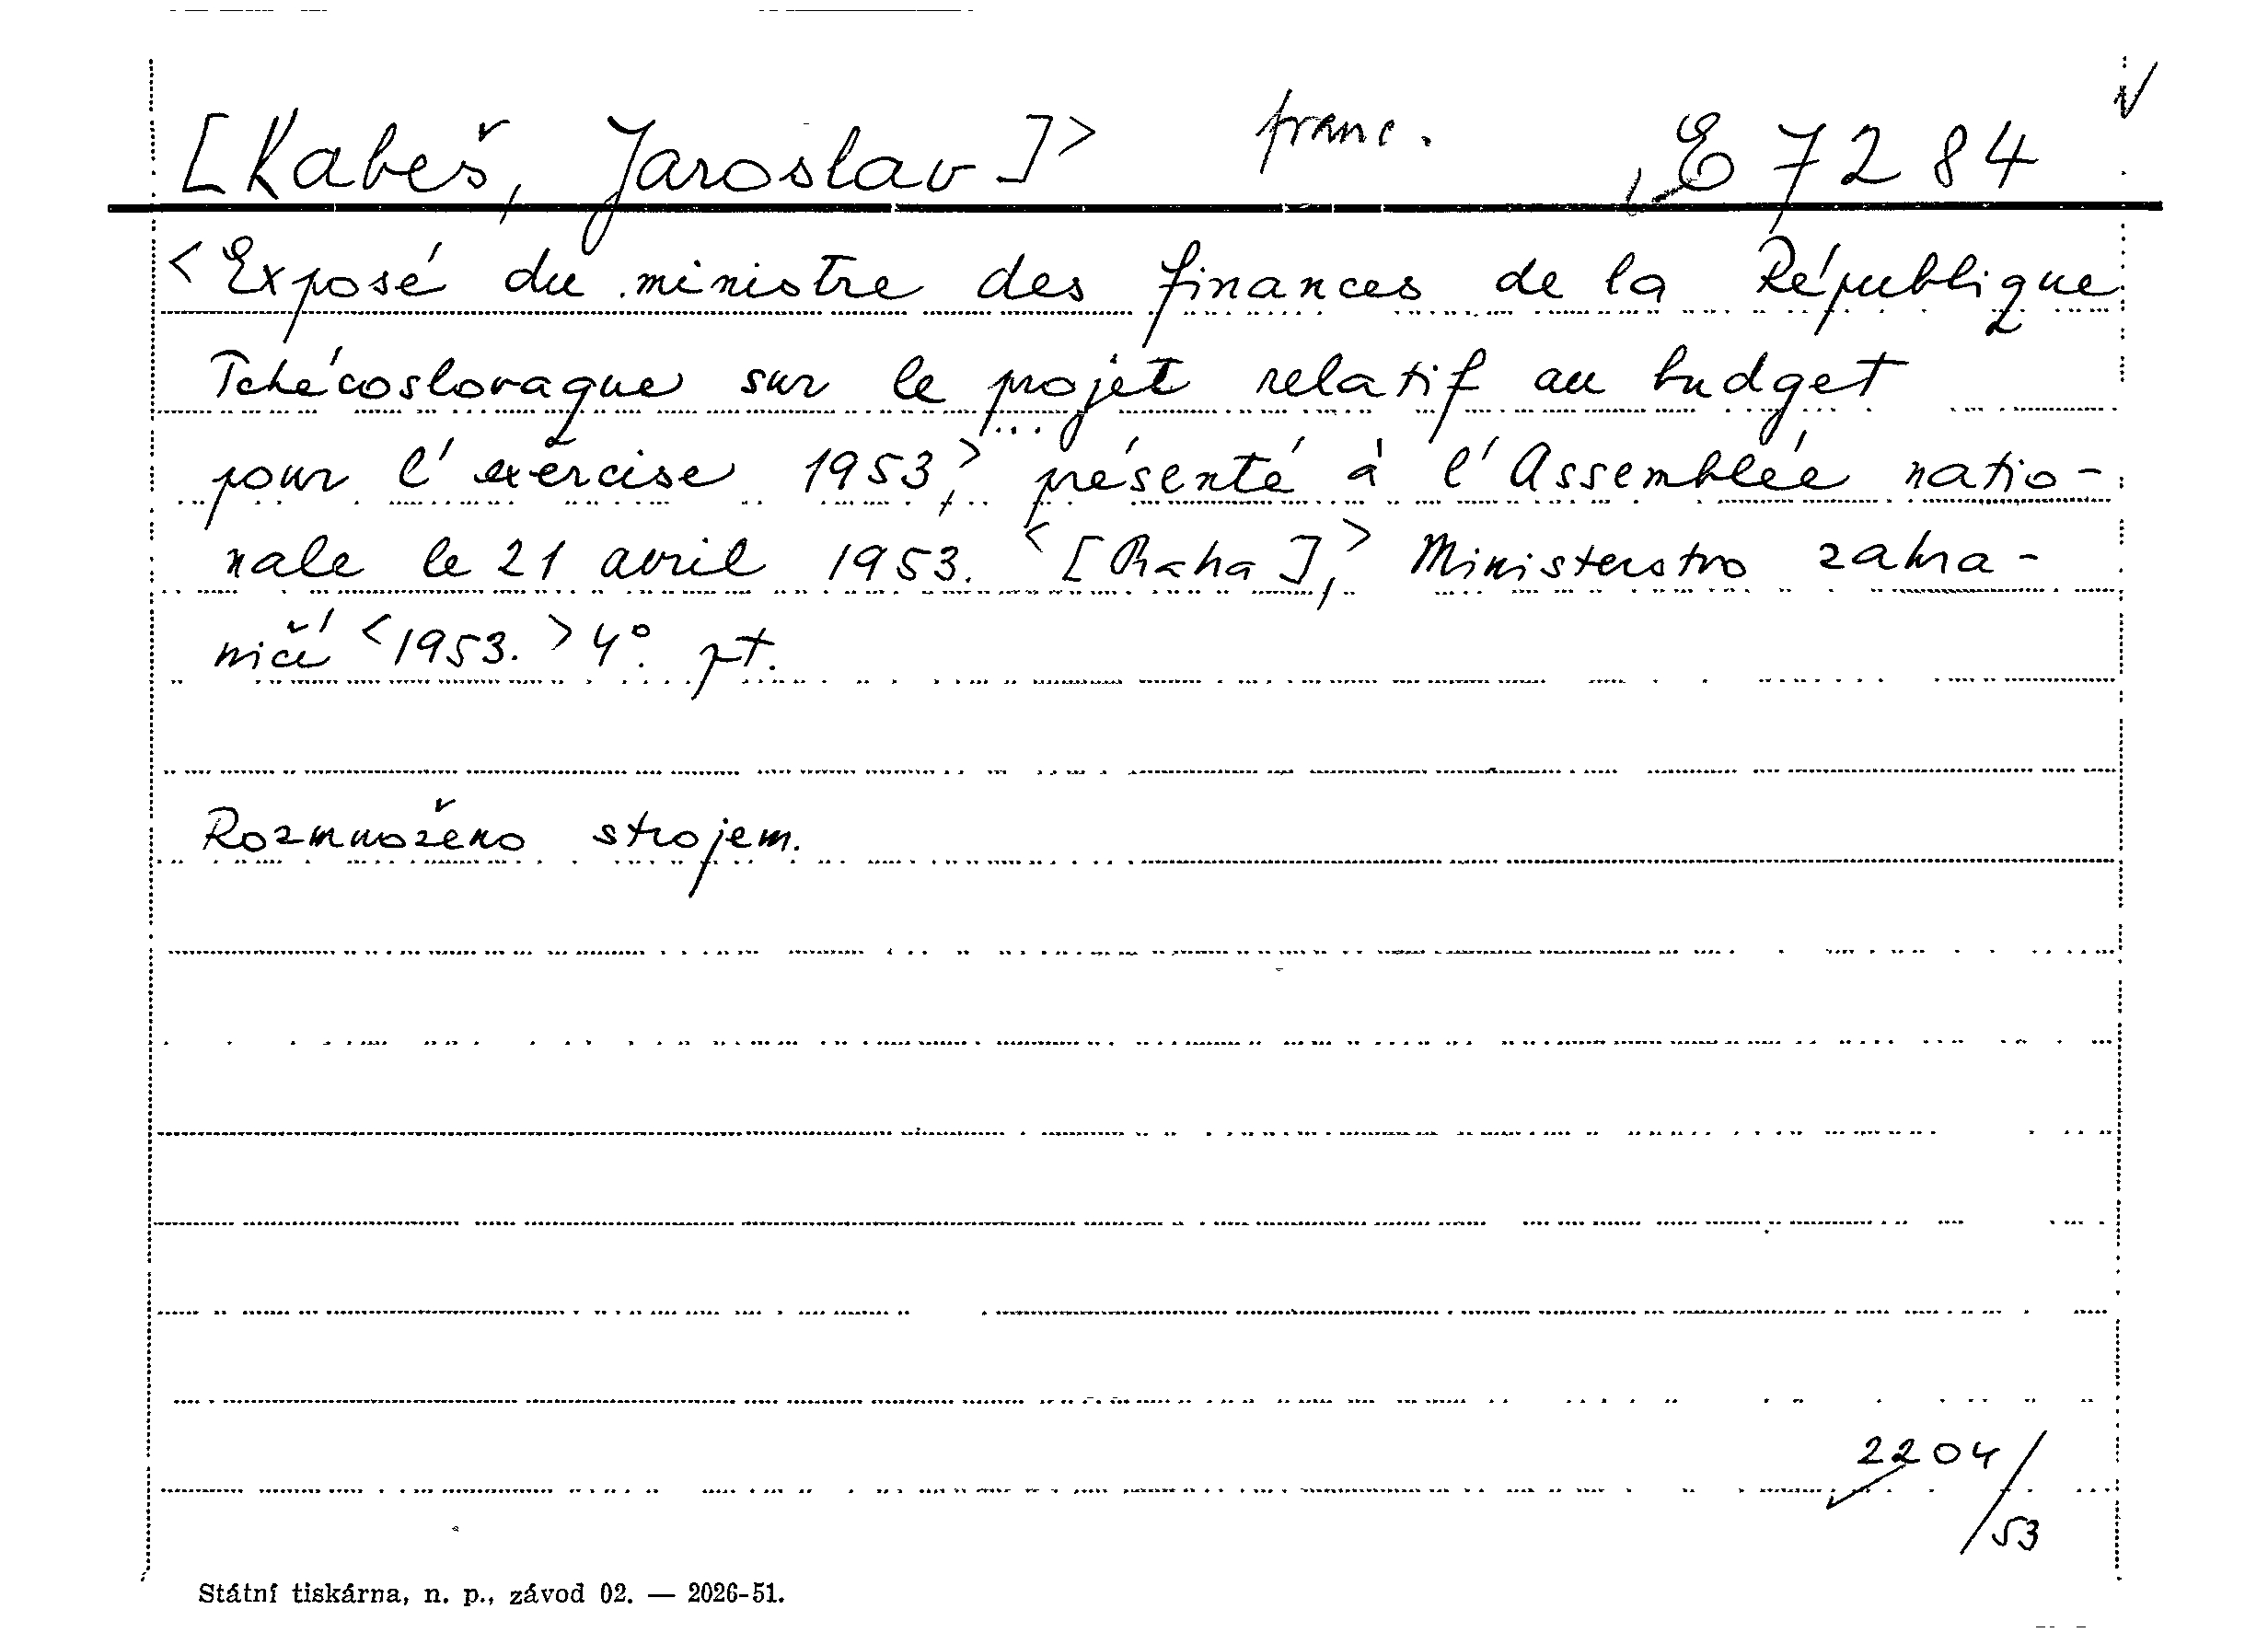 [Kabeš, Jaroslav]> franc. E 7284
<Exposé du ministre des finances de la République
Tchécoslovaque sur le projet relatif au budget
pour l'exercise 1953,> présenté à l'Assemblée natio-
nale le 21 avril 1953. <[Praha],> Ministerstvo zahra-
ničí <1953.> 4°. pt.
Rozmnoženo strojem.
2204/
53
Státní tiskárna, n. p., závod 02. — 2026-51.